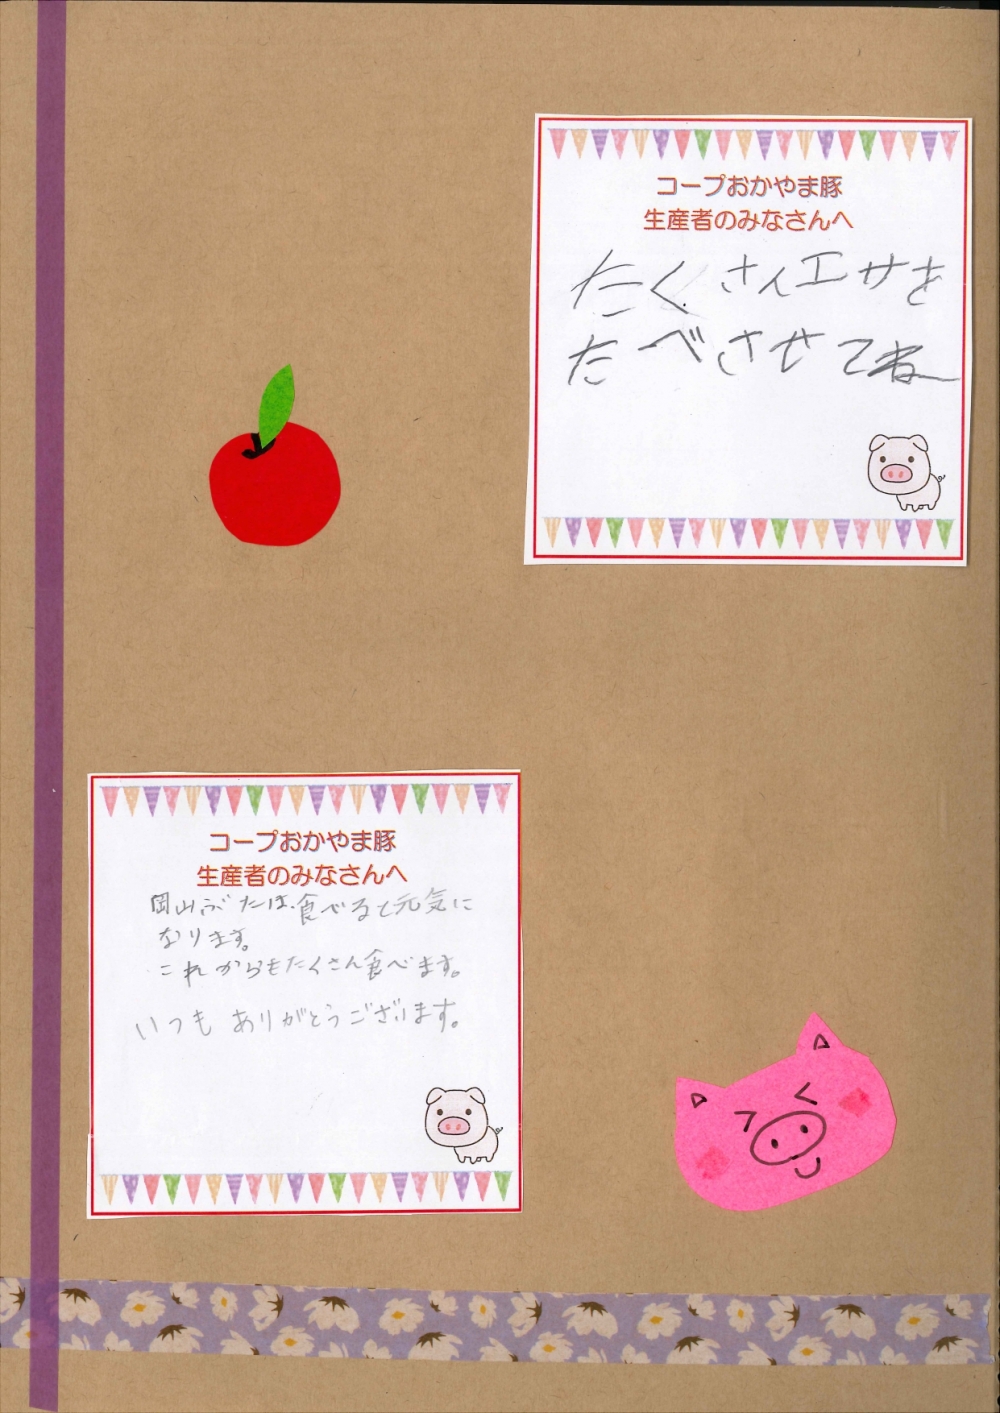 コープおかやま豚
生産者のみなさんへ
たくさんエサを
たべさせてね
コープおかやま豚
生産者のみなさんへ
岡山ぶたは、食べると元気に
なります。
これからもたくさん食べます。
いつもありがとうございます。